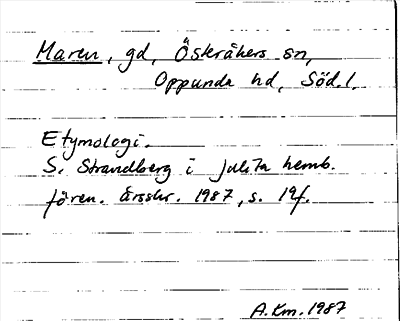 Maren, gd, Österåkers sn,
Oppunda hd, Söd. l.
Etymologi.
S. Strandberg i Julita hemb.
fören. årsskr. 1987, s. 19f.
A.Km. 1987